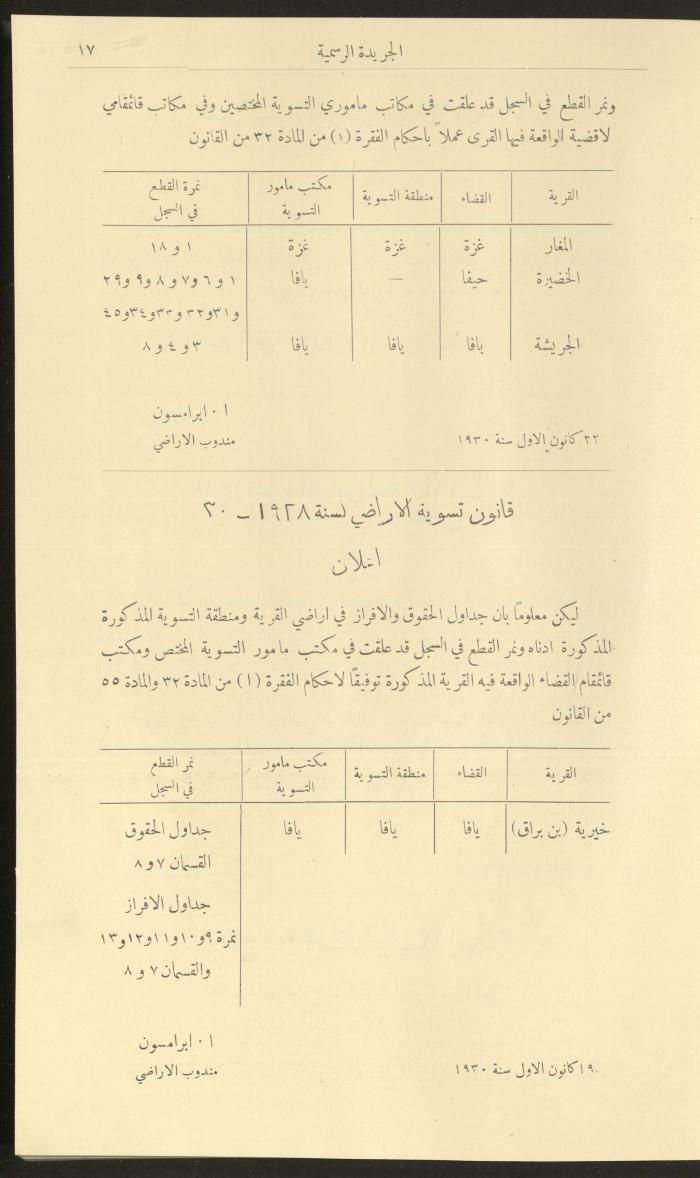 الجريدة الرسمية ١٧
ونمر القطع في السجل قد علقت في مكاتب ماموري التسوية المختصين وفي مكاتب قائمقامي
لاقضية الواقعة فيها القرى عملاً باحكام الفقرة (١) من المادة ٣٢ من القانون
القرية القضاء منطقة التسوية مكتب مامور نمرة القطع
التسوية في السجل
المغار غزة غزة غزة ١ و ١٨
الخضيرة حيفا — يافا ١ و ٦ و٧ و ٨ و٩ و٢٩
و٣١و٣٢ و٣٣و٣٤و٤٥
الجريشة يافا يافا يافا ٣ و ٤ و ٨
ا ٠ ابرامسون
٢٢ كانون الاول سنة ١٩٣٠ مندوب الاراضي
قانون تسوية الاراضي لسنة ١٩٢٨ – ٣٠
اعلان
ليكن معلوماً بان جداول الحقوق والافراز في اراضي القرية ومنطقة التسوية المذكورة
المذكورة ادناه ونمر القطع في السجل قد علقت في مكتب مامور التسوية المختص ومكتب
قائمقام القضاء الواقعة فيه القرية المذكورة توفيقاً لاحكام الفقرة (١) من المادة ٣٢ والمادة ٥٥
من القانون
القرية القضاء منطقة التسوية مكتب مامور نمر القطع
التسوية في السجل
خيرية (بن براق) يافا يافا يافا جداول الحقوق
القسمان ٧ و ٨
جداول الافراز
نمرة ٩ و١٠ و١١ و١٢ و١٣
والقسمان ٧ و ٨
ا ٠ ابرامسون
١٩ كانون الاول سنة ١٩٣٠ مندوب الاراضي